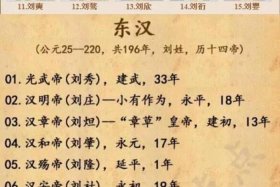 11.刘奭 12.刘骜 13.刘欣 14.刘衎 15.刘婴
东汉
(公元25—220，共196年，刘姓，历十四帝)
01. 光武帝(刘秀)，建武，33年
02. 汉明帝(刘庄)—小有作为，永平，18年
03. 汉章帝(刘炟)—“章草”皇帝，建初，13年
04. 汉和帝(刘肇)，永元，17年
05. 汉殇帝(刘隆)，延平，1年